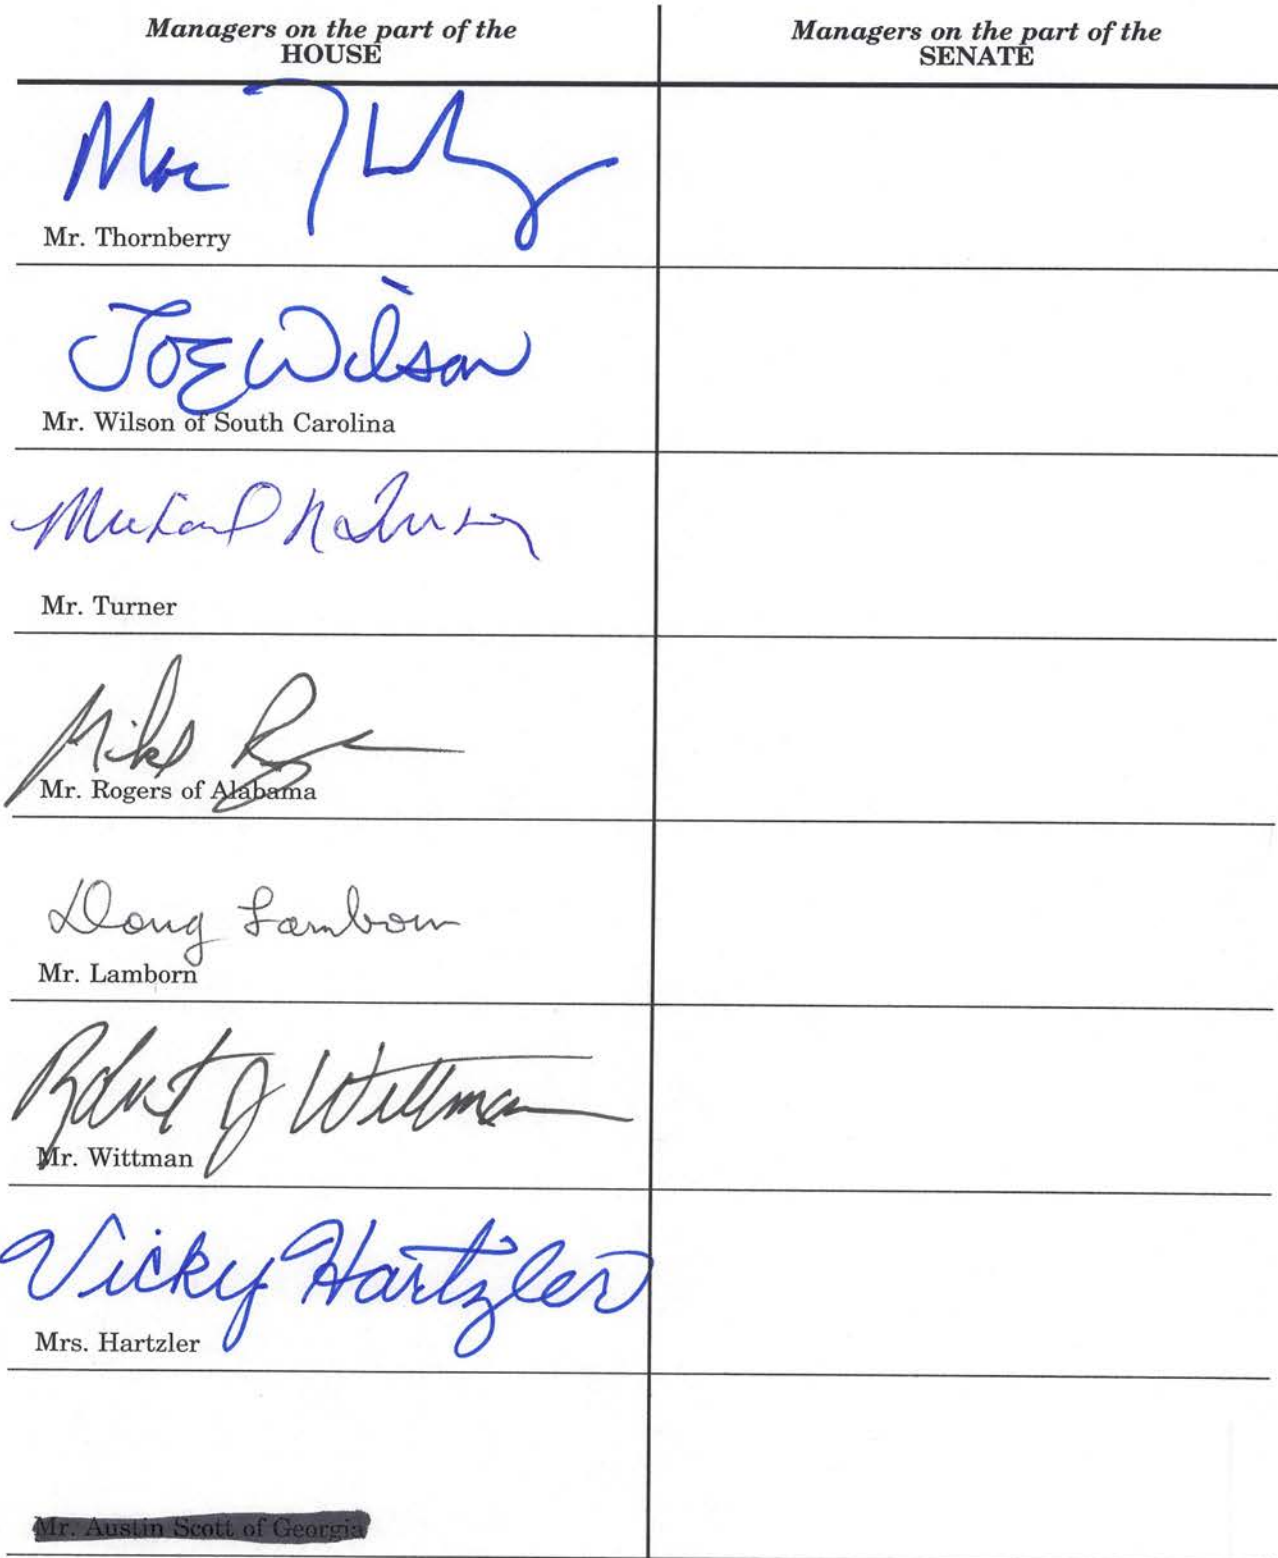 Managers on the part of the
HOUSE
Managers on the part of the
SENATE
Mac
Mr. Thornberry
Joe Wilson
Mr. Wilson of South Carolina
Michael R Turner
Mr. Turner
Mike
Mr. Rogers of Alabama
Doug Lamborn
Mr. Lamborn
Robert J Wittman
Mr. Wittman
Vicky Hartzler
Mrs. Hartzler
Mr. Austin Scott of Georgia